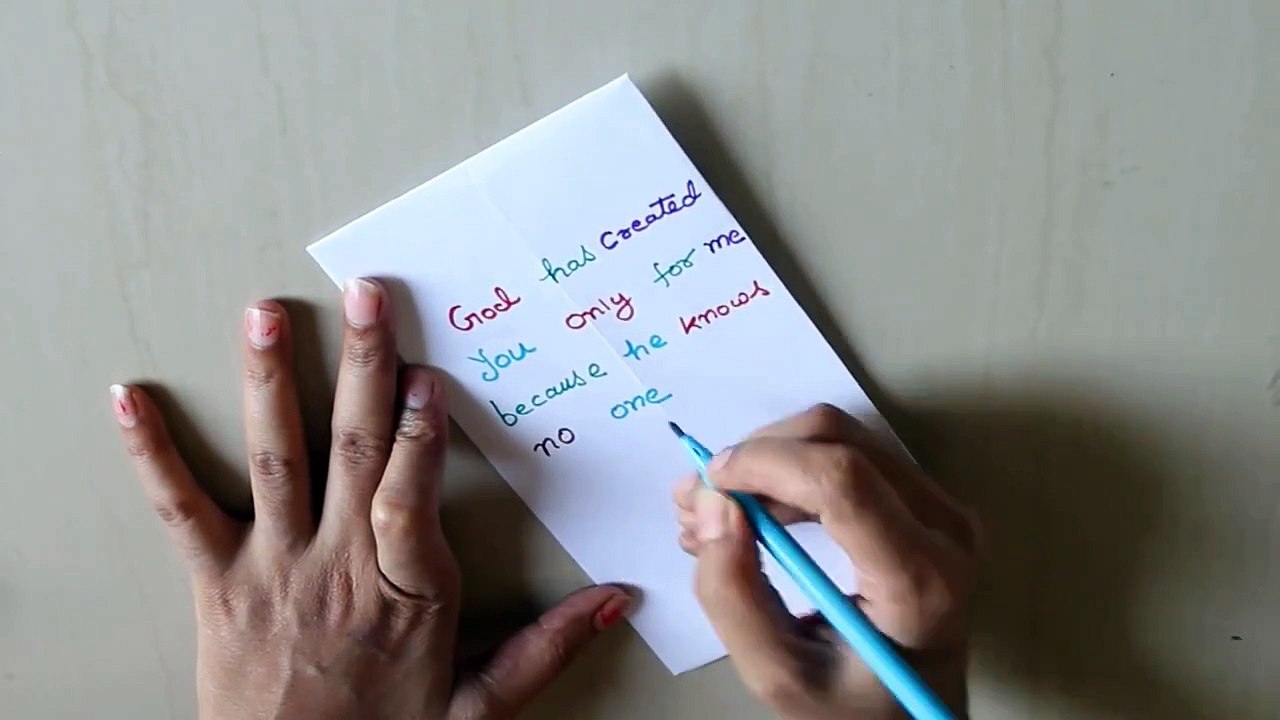 God has Created
you only for me
because he knows
no one